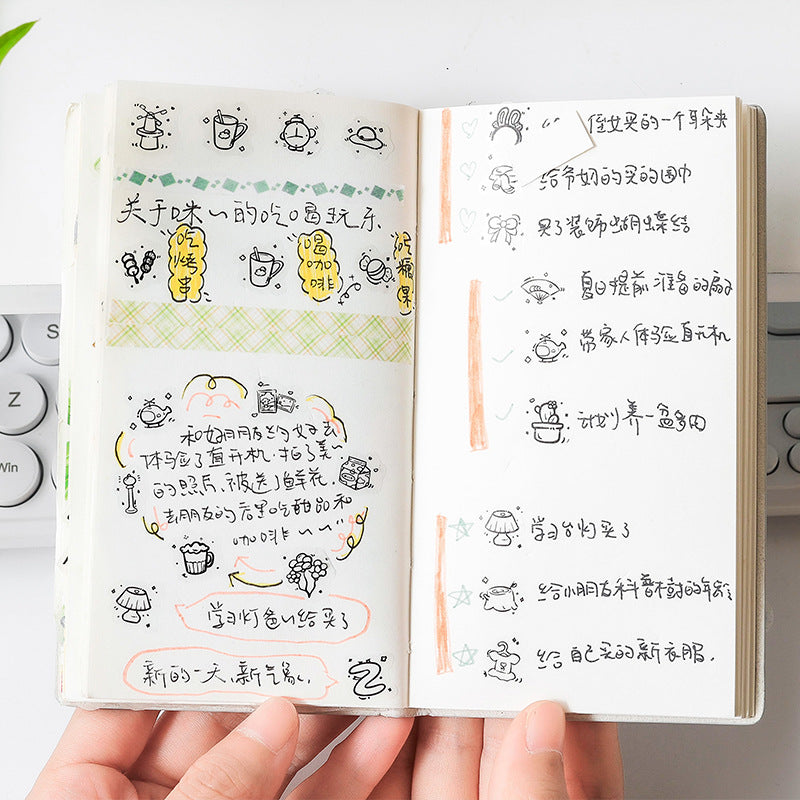 关于咪〰的吃喝玩乐、
吃烤串
喝咖啡
吃糖果
和好朋友约好去
体验了直升机.拍了美
的照片,被送了鲜花.
去朋友的店里吃甜品和
咖啡〰〰"
学习灯爸〰给买了
新的一天、新气象.
侄女买的一个耳朵夹
给爷奶的买的围巾
买了装饰蝴蝶结
夏日提前准备的扇子
带家人体验直升机
计划养一盆多肉
学习台灯买了
给小朋友科普树的年龄
给自己买的新衣服.
S
Z
Win